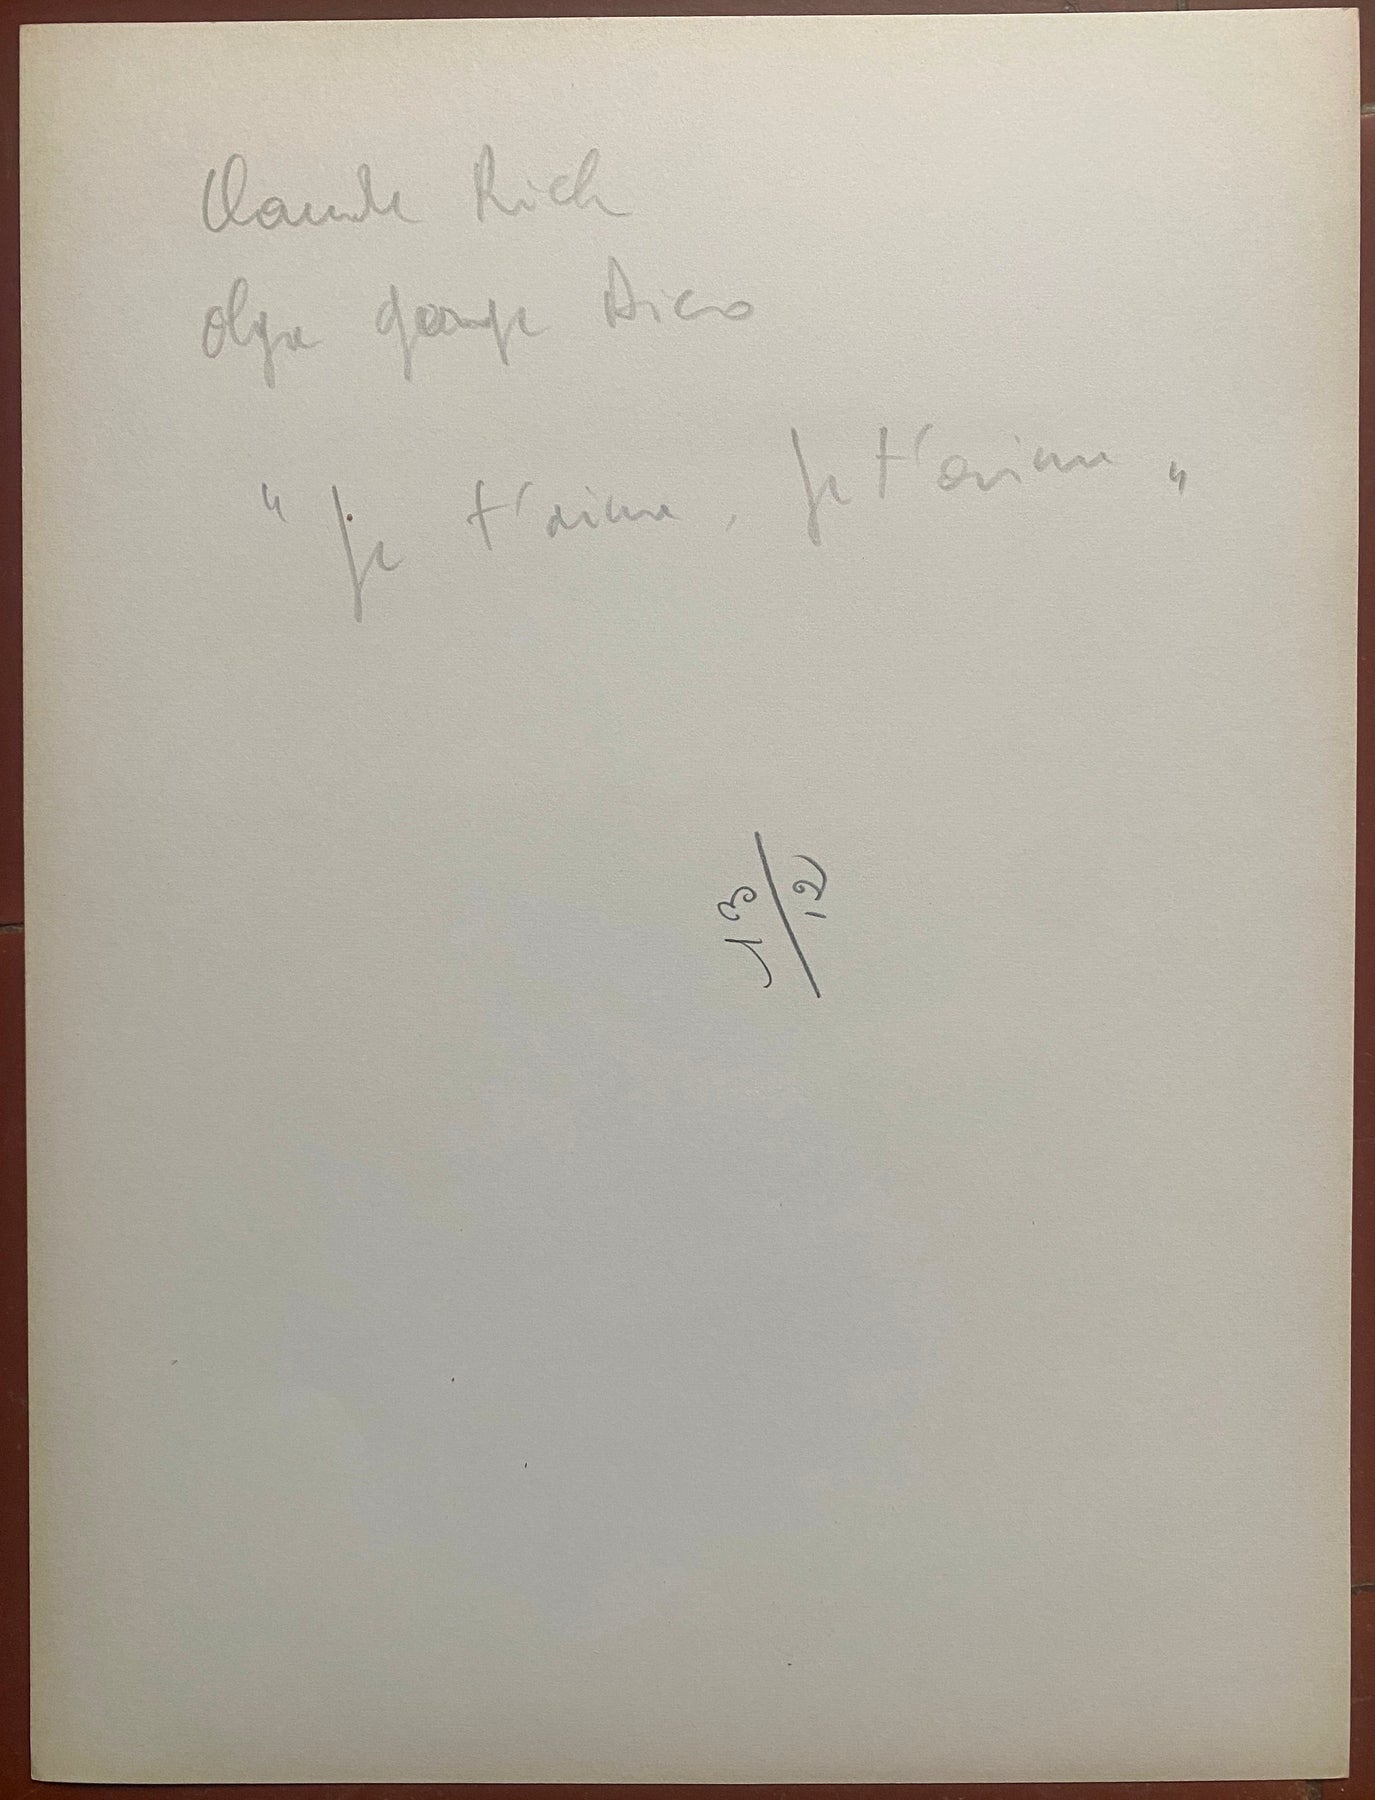 Claude Rich
Olga George Picot
" Je t'aime, je t'aime "
13/12